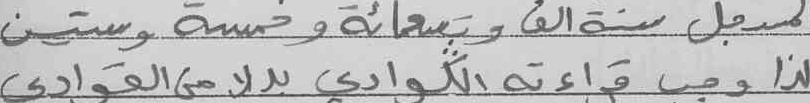 المسجل سنة الف وتسعمائة وخمسة وستين
لذا وجب قراءته الكوادي بدلا من القوادي